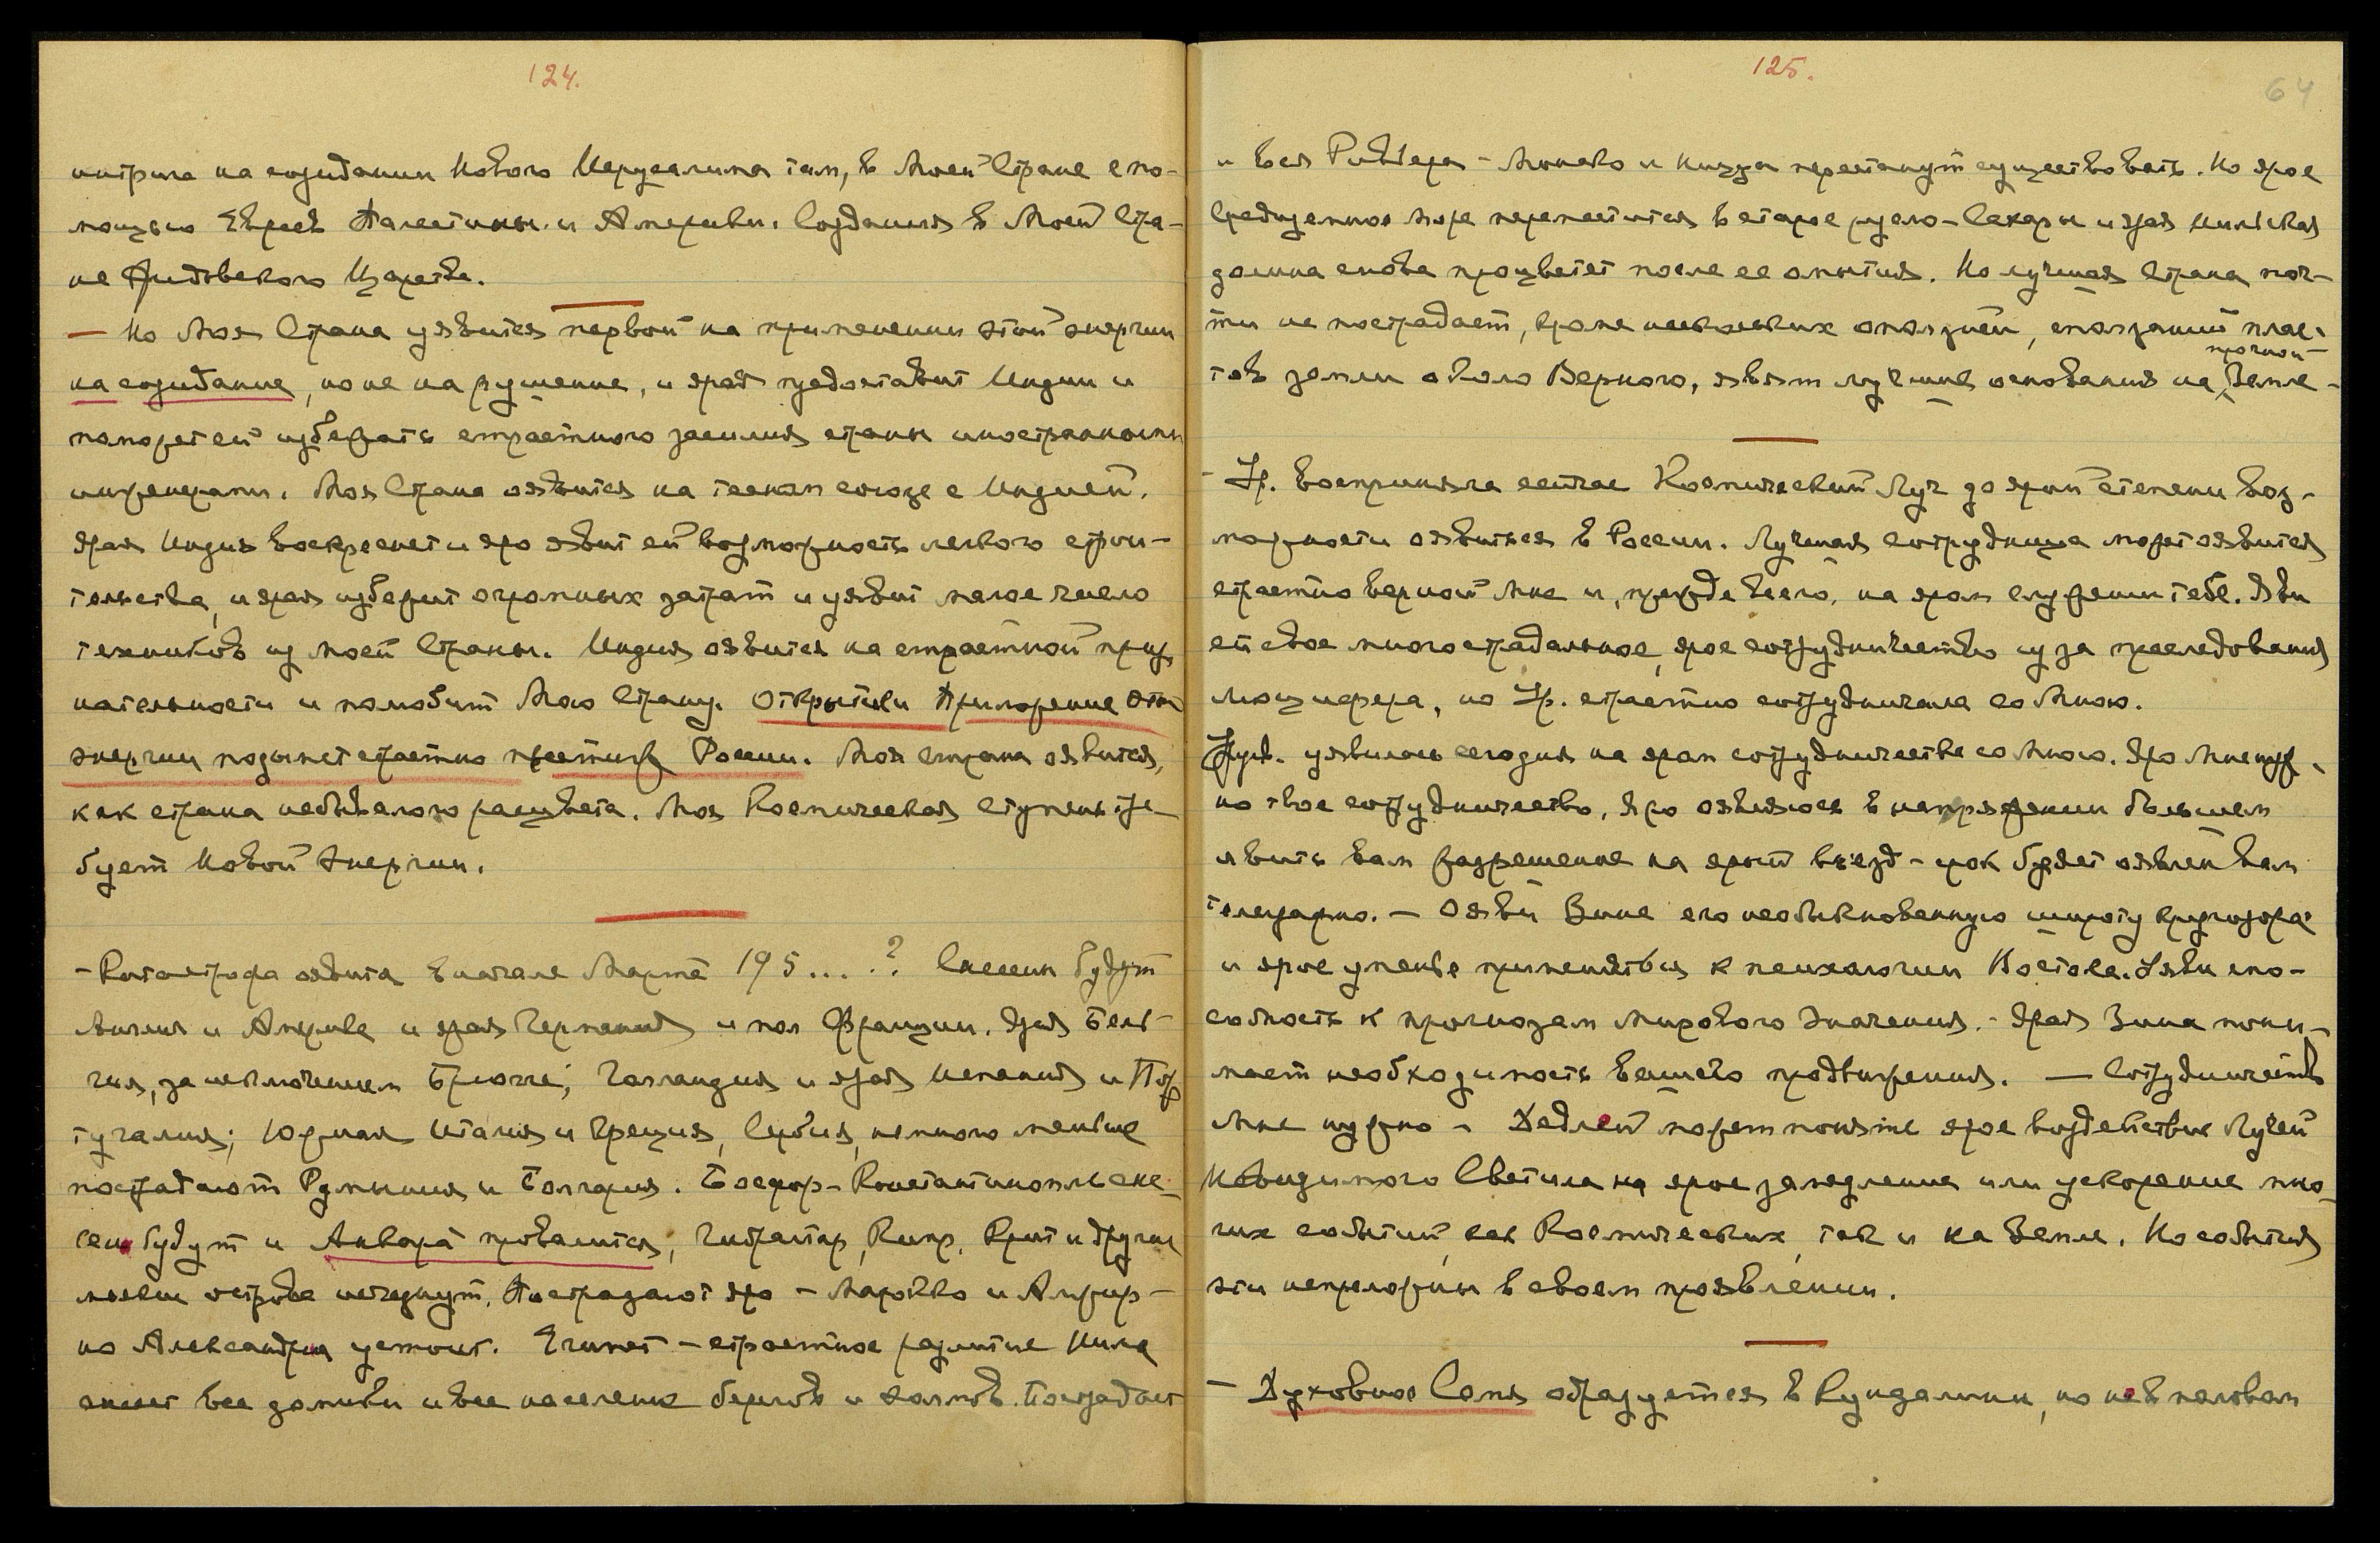 124.
интриге на созидании Нового Иерусалима там, в Моей Стране с по-
мощью Евреев Палестины и Америки. Создания в Моей Стра-
не Жидовского Царства.
— Но Моя Страна уявится первой на применении этой энергии
на созидание, но не на рушение, и ярая предоставит Индии и
поможет ей избежать страстного засилия страны иностранными
инженерами. Моя Страна оявится на тесном союзе с Индией.
Ярая Индия воскреснет и яро явит ей возможность легкого строи-
тельства, и ярая избежит огромных затрат и уявит малое число
техников из моей Страны. Индия оявится на страстной приз-
нательности и полюбит Мою Страну. Открытие и Приложение этой
энергии подымет страстно престиж России. Моя страна оявится,
как страна небывалого расцвета. Моя Космическая ступень тре-
бует Новой Энергии.
- Катастрофа оявится в начале Марта 195....? Снесены будут
Англия и Америка и ярая Германия и пол Франции. Ярая Бель-
гия, за исключением Брюгге; Голландия и ярая Испания и Пор
тугалия; Южная Италия и Греция, Сербия, немного меньше
пострадают Румыния и Болгария. Босфор-Константинополь сне-
сены будут и Анкара провалится, Гибралтар, Кипр, Крит и другие
мелкие острова исчезнут. Пострадают яро - Марокко и Алжир -
но Александрия устоит. Египет - страстное разлитие Нила
снесет все домики и все население берегов и холмов. Пострадает
125.
64
и вся Ривьера - Монако и Ницца перестанут существовать. Но ярое
Средиземное Море переместится в старое русло - Сахары и ярая Нильская
долина снова процветет после ее омытия. Но лучшая Страна поч-
ти не пострадает, кроме нескольких оползней, сползаний плас-
прочной
тов земли около Верного, явят лучшие основания на Земле -
- Ур. восприняла сейчас Космический Луч до ярой степени воз-
можности оявиться в России. Лучшая сотрудница может оявиться
страстно верной Мне и, прежде всего, на яром служении тебе. Яви
ей свое многострадальное, ярое сотрудничество из за преследования
Люцифера, но Ур. страстно сотрудничала со Мною.
Ур. уявилась сегодня на яром сотрудничестве со Мною. Яро Мне нуж-
но твое сотрудничество, Яро оявляюсь в напряжении большем
явить вам разрешение на ярый въезд - срок будет оявлен вам
телеграмно. — Ояви Зине его необыкновенную широту кругозора
и ярое уменье применяться к психологии Востока. Уяви спо-
собность к прогнозам Мирового Значения. - Ярая Зина пони-
мает необходимость Вашего продвижения. — Сотрудничество
Мне нужно - Хедлей может понять ярое воздействие Лучей
Невидимого Светила на ярое замедление или ускорение мно-
гих событий, как Космических, так и на Земле. Но события
эти непреложны в своем проявлении.
- Духовное Семя образуется в Кундалини, но не в половом